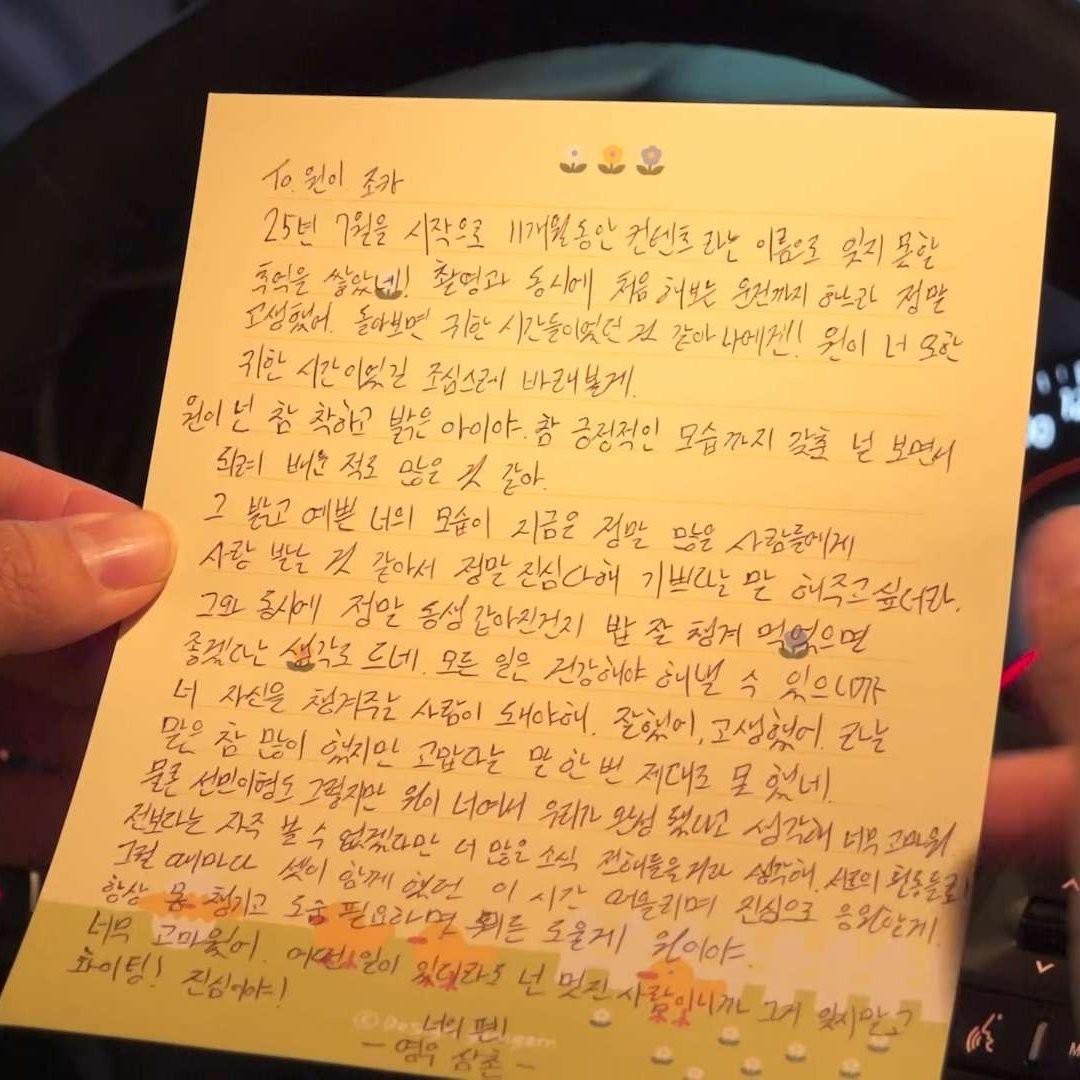 To. 원이 조카
25년 7월을 시작으로 11개월동안 컨텐츠라는 이름으로 잊지 못할
추억을 쌓았네! 촬영과 동시에 처음 해보는 운전까지 하느라 정말
고생했어. 돌아보면 귀한 시간들이었던 것 같아 나에겐! 원이 너 또한
귀한 시간이었길 조심스레 바래볼게.
원이 넌 참 착하고 밝은 아이야. 참 긍정적인 모습까지 갖춘 널 보면서
되려 배운 적도 많은 것 같아.
그 밝고 예쁜 너의 모습이 지금은 정말 많은 사람들에게
사랑 받는 것 같아서 정말 진심다해 기쁘다는 말 해주고 싶더라.
그와 동시에 정말 동생같아진건지 밥 잘 챙겨 먹었으면
좋겠다는 생각도 드네. 모든 일은 건강해야 해낼 수 있으니까
너 자신을 챙겨주는 사람이 돼야해. 잘했어, 고생했어. 라는
말은 참 많이 했지만 고맙다는 말 한 번 제대로 못 했네.
물론 선민이형도 그렇지만 원이 너여서 우리가 완성 됐다고 생각해 너무 고마워.
전보다는 자주 볼 수 없겠다만 더 많은 소식 전해들을거라 생각해. 서로의 활동들로!
그럴 때마다 셋이 함께 했던 이 시간 떠올리며 진심으로 응원할게.
항상 몸 챙기고 도움 필요하면 뭐든 도울게 원이야.
너무 고마웠어. 어떤 일이 있더라도 넌 멋진 사람이니까 그거 잊지말고
화이팅! 진심이야!
너의 편!
- 영우 삼촌 -